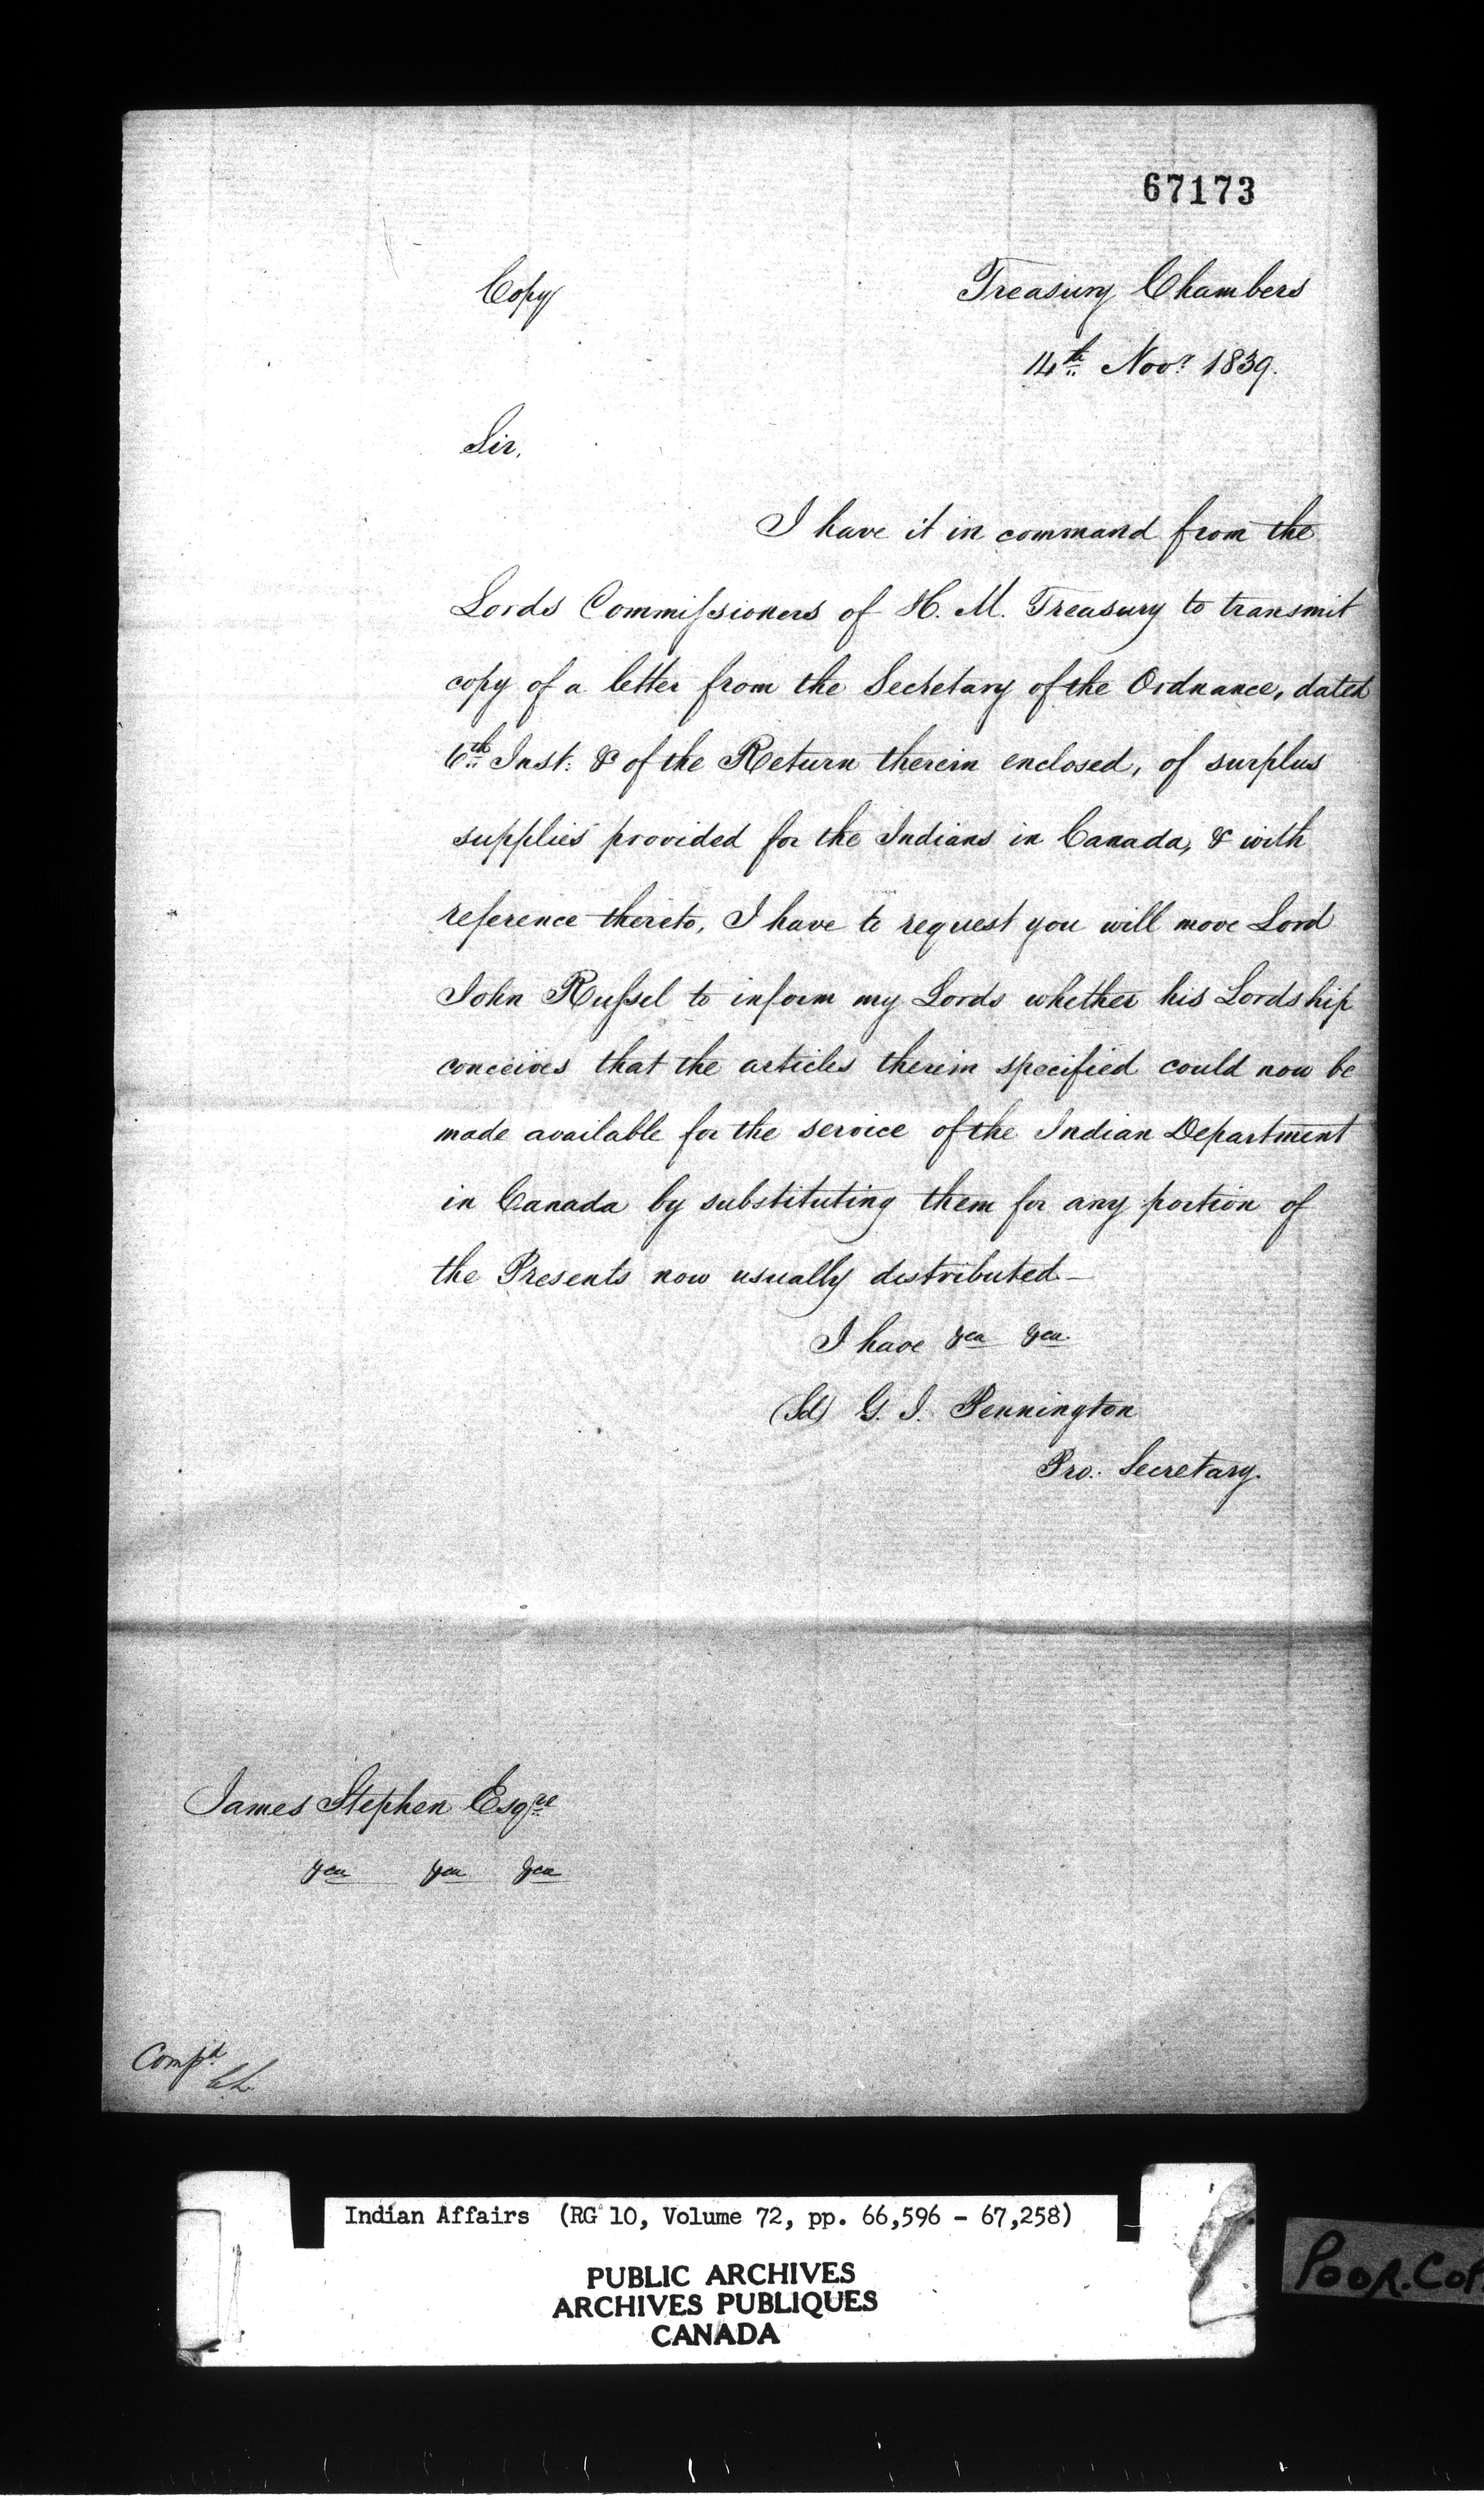 67173
Copy
Treasury Chambers
14th Novr 1839.
Sir,
I have it in command from the
Lords Commissioners of H. M. Treasury to transmit
copy of a letter from the Secretary of the Ordnance, dated
6th Inst: & of the Return therein enclosed, of surplus
supplies provided for the Indians in Canada, & with
reference thereto, I have to request you will move Lord
John Russel to inform my Lords whether his Lordship
conceives that the articles therein specified could now be
made available for the service of the Indian Department
in Canada by substituting them for any portion of
the Presents now usually distributed—
I have &ca &ca
(Sd) G. I. Pennington
Pro. Secretary.
James Stephen Esqre
&ca &ca &ca
Compd
Indian Affairs (RG 10, Volume 72, pp. 66,596 - 67,258)
PUBLIC ARCHIVES
ARCHIVES PUBLIQUES
CANADA
POOR.COP